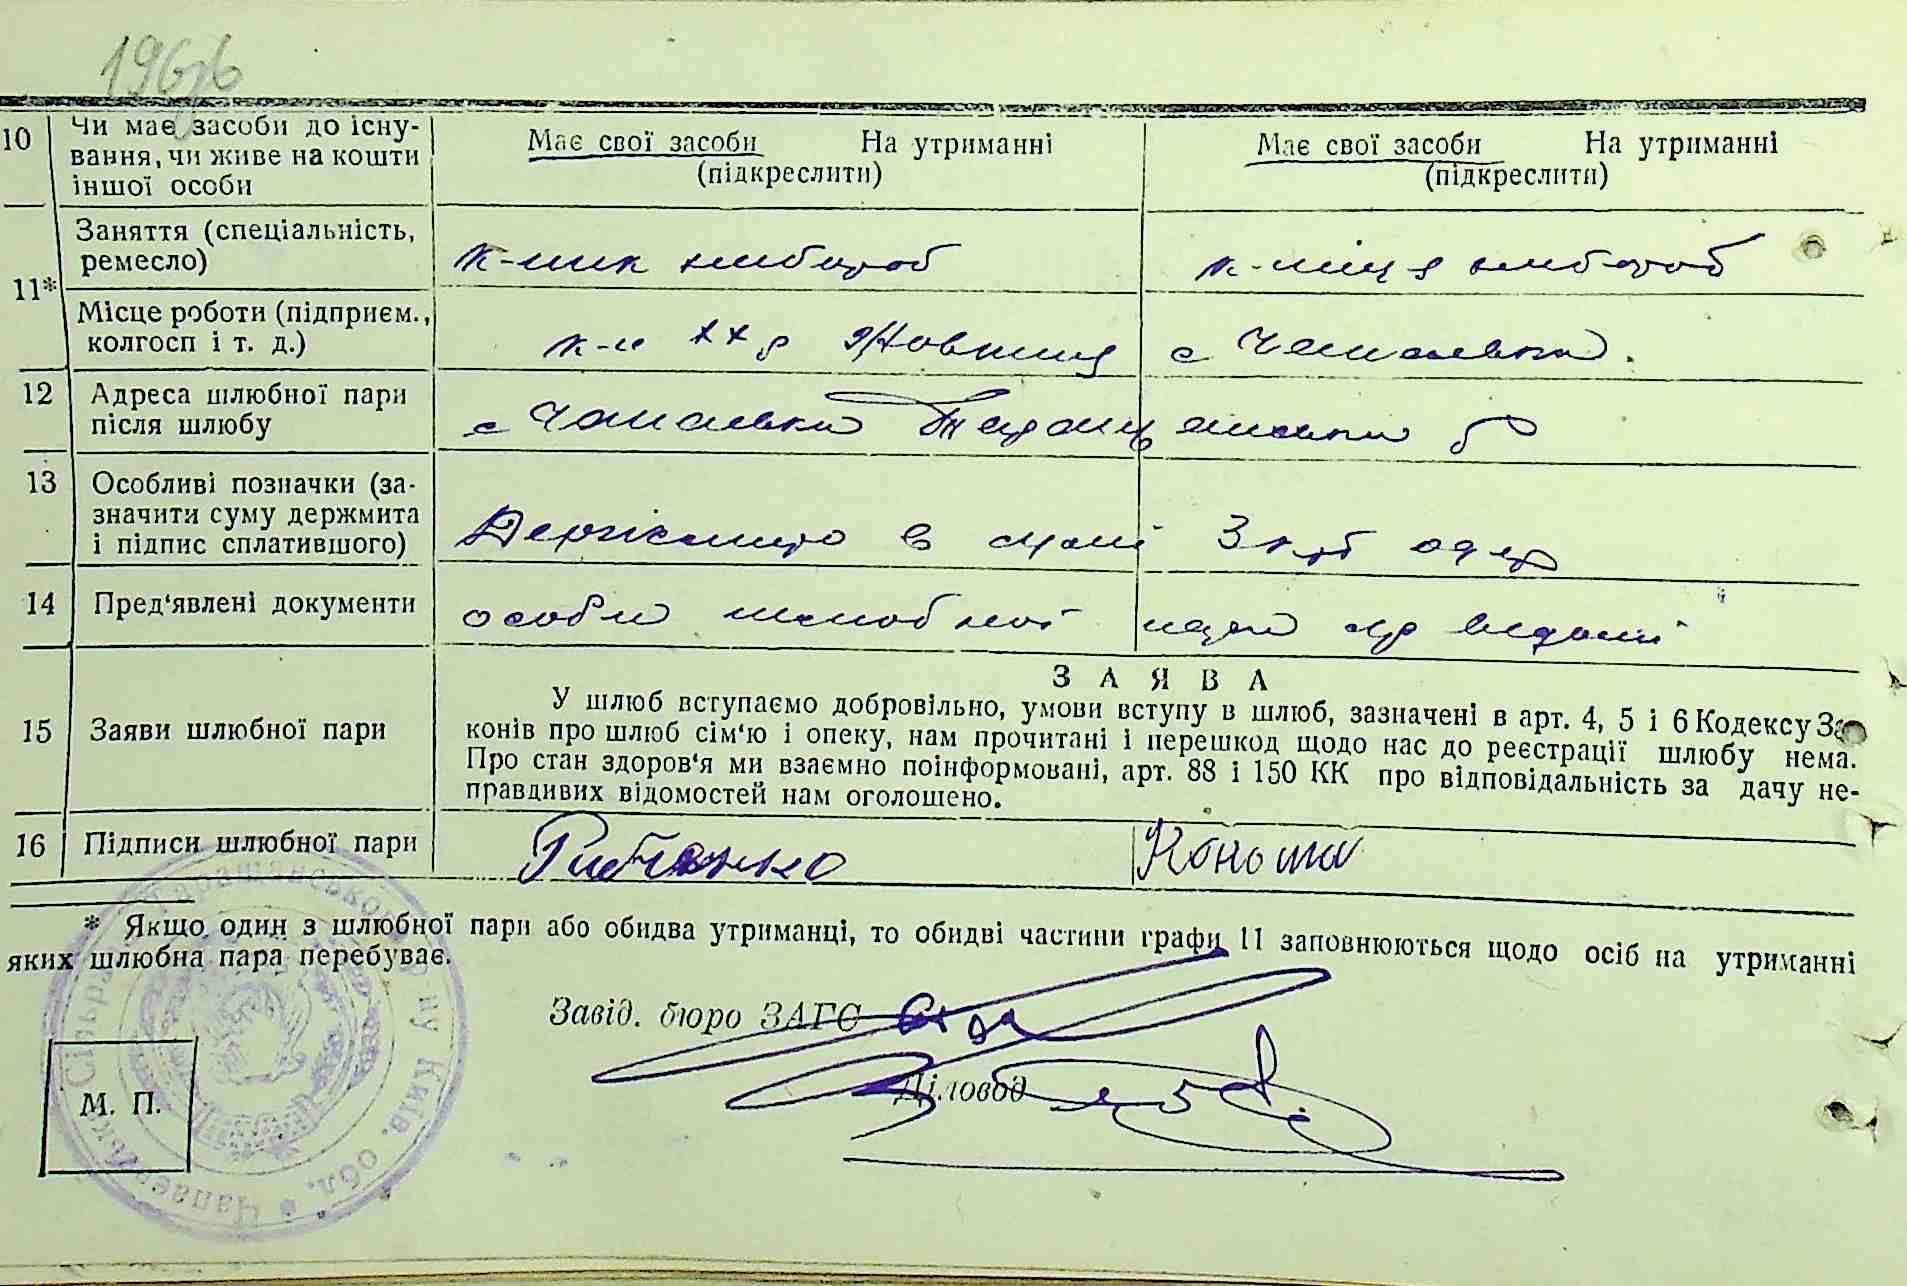 196
10 Чи має засоби до існу-
вання, чи живе на кошти
іншої особи
Має свої засоби На утриманні
(підкреслити)
Має свої засоби На утриманні
(підкреслити)
11*
Заняття (спеціальність,
ремесло)
к-ник хлібороб
к-ниця хлібороб
Місце роботи (підприєм.,
колгосп і т. д.)
Жовтня с Чапаєвка.
12 Адреса шлюбної пари
після шлюбу
с Чапаєвка Таращанськи
13 Особливі позначки (за-
значити суму держмита
і підпис сплатившого)
Держмито в сумі 3 крб
14 Пред‘явлені документи
особи шлюбної пари видані
15 Заяви шлюбної пари
ЗАЯВА
У шлюб вступаємо добровільно, умови вступу в шлюб, зазначені в арт. 4, 5 і 6 Кодексу За-
конів про шлюб сім‘ю і опеку, нам прочитані і перешкод щодо нас до реєстрації шлюбу нема.
Про стан здоров‘я ми взаємно поінформовані, арт. 88 і 150 КК про відповідальність за дачу не-
правдивих відомостей нам оголошено.
16 Підписи шлюбної пари
Рибченко
Конона
* Якщо один з шлюбної пари або обидва утриманці, то обидві частини графи 11 заповнюються щодо осіб на утриманні
яких шлюбна пара перебуває.
Завід. бюро ЗАГС
Діловод
М. П.
Чапаєвська Сільрада Таращанського р-ну Київ. обл.